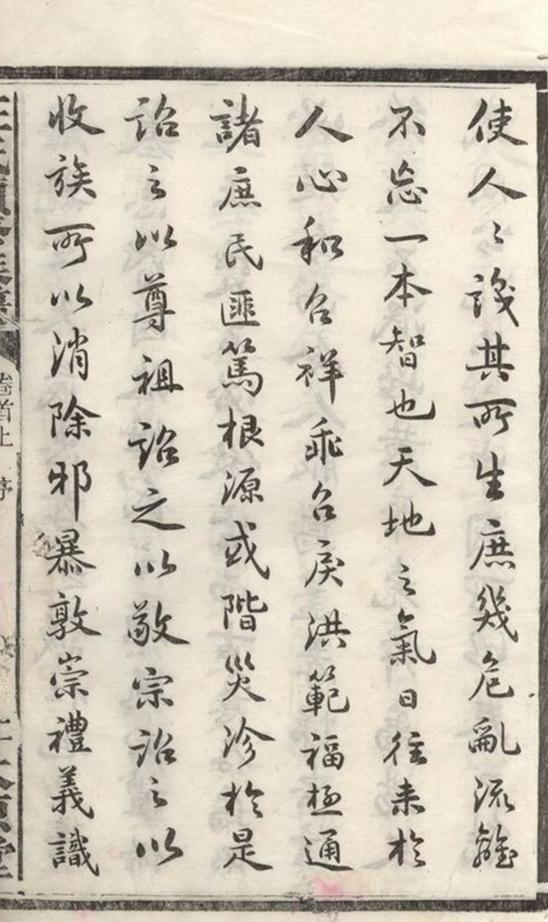 使人〻識其所生庶幾危亂流離
不忘一本智也天地之氣日往来於
人心和召祥乖召戾洪範福極通
諸庶民匪篤根源或階災沴於是
詔之以尊祖詔之以敬宗詔之以
收族所以消除邪暴敦崇禮義識
卷首上 序